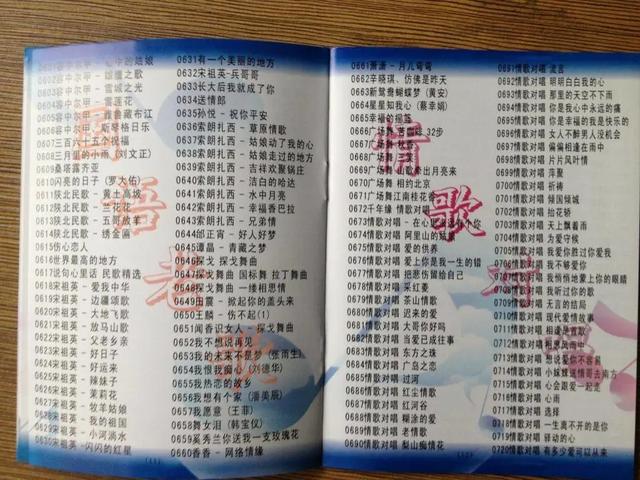 0602容中尔甲 - 雄鹰之歌
0603容中尔甲 - 雪域之光
0604容中尔甲 - 雪莲花
0606容中尔甲 - 斯琴格日乐
0607三百六十五个祝福
0608三月里的小雨 (刘文正)
0609桑塔露齐亚
0610闪亮的日子 (罗大佑)
0611陕北民歌 - 黄土高坡
0612陕北民歌 - 兰花花
0613陕北民歌 - 五哥放羊
0614陕北民歌 - 绣金匾
0615伤心恋人
0616世界最高的地方
0617说句心里话 民歌精选
0618宋祖英 - 爱我中华
0619宋祖英 - 边疆颂歌
0620宋祖英 - 大地飞歌
0621宋祖英 - 放马山歌
0622宋祖英 - 父老乡亲
0623宋祖英 - 好日子
0624宋祖英 - 好运来
0625宋祖英 - 辣妹子
0626宋祖英 - 茉莉花
0627宋祖英 - 牧羊姑娘
0628宋祖英 - 我的祖国
0629宋祖英 - 小河淌水
0630宋祖英 - 闪闪的红星
0631有一个美丽的地方
0632宋祖英-兵哥哥
0633长大后我就成了你
0634送情郎
0635孙悦 - 祝你平安
0636索朗扎西 - 草原情歌
0637索朗扎西 - 姑娘动了我的心
0638索朗扎西 - 姑娘走过的地方
0639索朗扎西 - 吉祥欢聚锅庄
0640索朗扎西 - 洁白的哈达
0641索朗扎西 - 水中月亮
0642索朗扎西 - 幸福香巴拉
0643索朗扎西 - 兄弟情
0644邰正宵 - 好人好梦
0645谭晶 - 青藏之梦
0646探戈 - 探戈舞曲
0647探戈舞曲 国标舞 拉丁舞曲
0648探戈舞曲 - 一缕相思情
0649田震 - 掀起你的盖头来
0650王麟 - 伤不起(1)
0651闻香识女人 - 探戈舞曲
0652我不想说再见
0653我的未来不是梦 (张雨生)
0654我恨我痴心 (刘德华)
0655我热恋的故乡
0656我想有个家 (潘美辰)
0657我愿意 (王菲)
0658舞女泪 (韩宝仪)
0659奚秀兰你送我一支玫瑰花
0660香香 - 网络情缘
国语老歌
0661萧潇 - 月儿弯弯
0662辛晓琪、仿佛是昨天
0663新鸳鸯蝴蝶梦 (黄安)
0664星星知我心 (蔡幸娟)
0665幸福的摇篮
0670广场舞 相约北京
0671广场舞江南桂花香
0672千年缘 情歌对唱
0674情歌对唱 阿里山的姑娘
0675情歌对唱 爱的供养
0676情歌对唱 爱上你是我一生的错
0677情歌对唱 把悲伤留给自己
0678情歌对唱 采红菱
0679情歌对唱 茶山情歌
0680情歌对唱 迟来的爱
0681情歌对唱 大哥你好吗
0682情歌对唱 当爱已成往事
0683情歌对唱 东方之珠
0684情歌对唱 广岛之恋
0685情歌对唱 过河
0686情歌对唱 红尘情歌
0687情歌对唱 红河谷
0688情歌对唱 糊涂的爱
0689情歌对唱 老情歌
0690情歌对唱 梨山痴情花
0691情歌对唱 流言
0692情歌对唱 明明白白我的心
0693情歌对唱 那里的天空不下雨
0694情歌对唱 你是我心中永远的痛
0695情歌对唱 你是幸福的我是快乐的
0696情歌对唱 女人不醉男人没机会
0697情歌对唱 偏偏相逢在雨中
0698情歌对唱 片片风叶情
0699情歌对唱 萍聚
0700情歌对唱 祈祷
0701情歌对唱 倾国倾城
0702情歌对唱 抬花轿
0703情歌对唱 天上飘着雨
0704情歌对唱 为爱守候
0705情歌对唱 我爱你胜过你爱我
0706情歌对唱 我不够爱你
0707情歌对唱 我悄悄地蒙上你的眼睛
0708情歌对唱 我听过你的歌
0709情歌对唱 无言的结局
0710情歌对唱 现代爱情故事
0711情歌对唱 相逢是首歌
0712情歌对唱 相思风雨中
0713情歌对唱 想说爱你不容易
0714情歌对唱 小妹妹送情哥去南方
0715情歌对唱 心会跟爱一起走
0716情歌对唱 心雨
0717情歌对唱 选择
0718情歌对唱 一生离不开的是你
0719情歌对唱 驿动的心
0720情歌对唱 有多少爱可以从来
情歌对唱